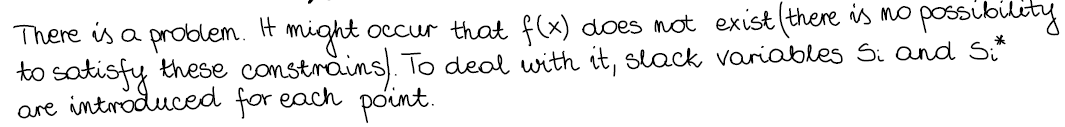 There is a problem. It might occur that f(x) does not exist (there is no possibility
to satisfy these constrains). To deal with it, slack variables Si and Si*
are introduced for each point.